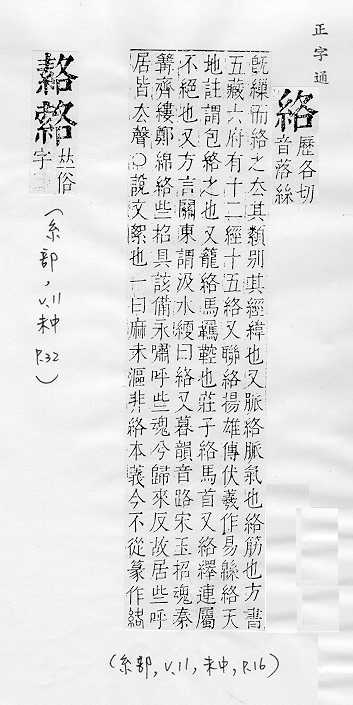 正字通
絡 歷各切
音落絲
既繅而絡之去其纇別其經緯也又脈絡脈氣也絡筋也方書
五藏六府有十二經十五絡又聯絡揚雄傳伏羲作易緜絡天
地註謂包絡之也又籠絡馬羈鞚也莊子絡馬首又絡繹連屬
不絕也又方言關東謂汲水綆曰絡又暮韻音路宋玉招魂秦
篝齊縷鄭綿絡些招具該備永嘯呼些魂兮歸來反故居些呼
居皆去聲○說文絮也一曰麻未漚非絡本義今不從篆作
俗
字
(糸部, v.11 未中 P.32)
(糸部, v.11, 未中, P.16)